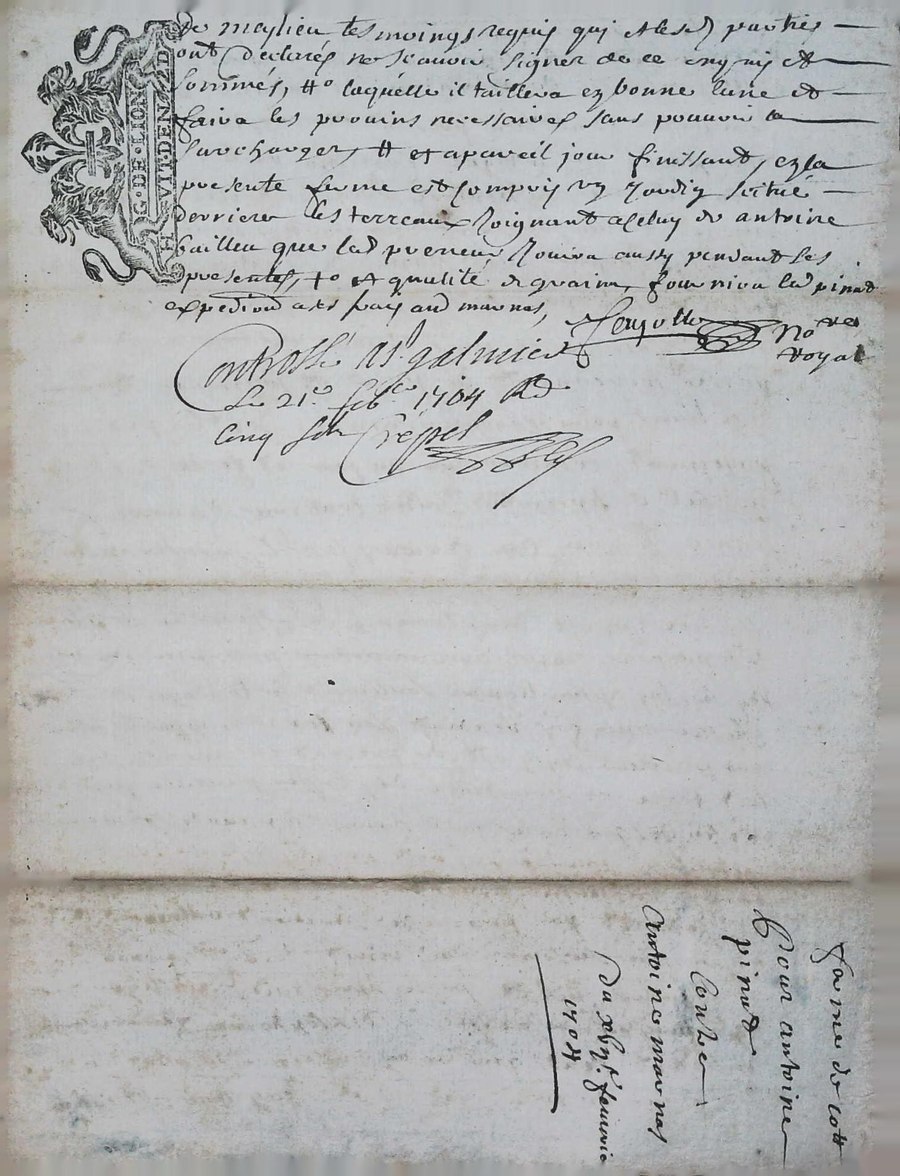 de meylieu tesmoings requis qui et lesd parties
ont declarés ne scavoir signer de ce enquis et
sommés, #o laquelle il taillera en bonne lune et
faira les provins necessaires sans pouvoir la
surcharger, # et a pareil jour finissant, en la
presente ferme est compris un jardin scitué
derriere les terreaux joignant a celuy de antoine
bailleu que led preneur jouira aussy pendant les
presentes, +o et qualité fournira led pinat
expedition a ses frais aud marnas,
No.re
royal
Controllé a St galmier
Le 21e febre 1704 Rd
cinq sols Crépel
G. DE LION
HVIT. DEN. 2D
ferme de
Pour antoine
pinat
Contre
Antoine marnas
Du xvje. feuvrie
1704